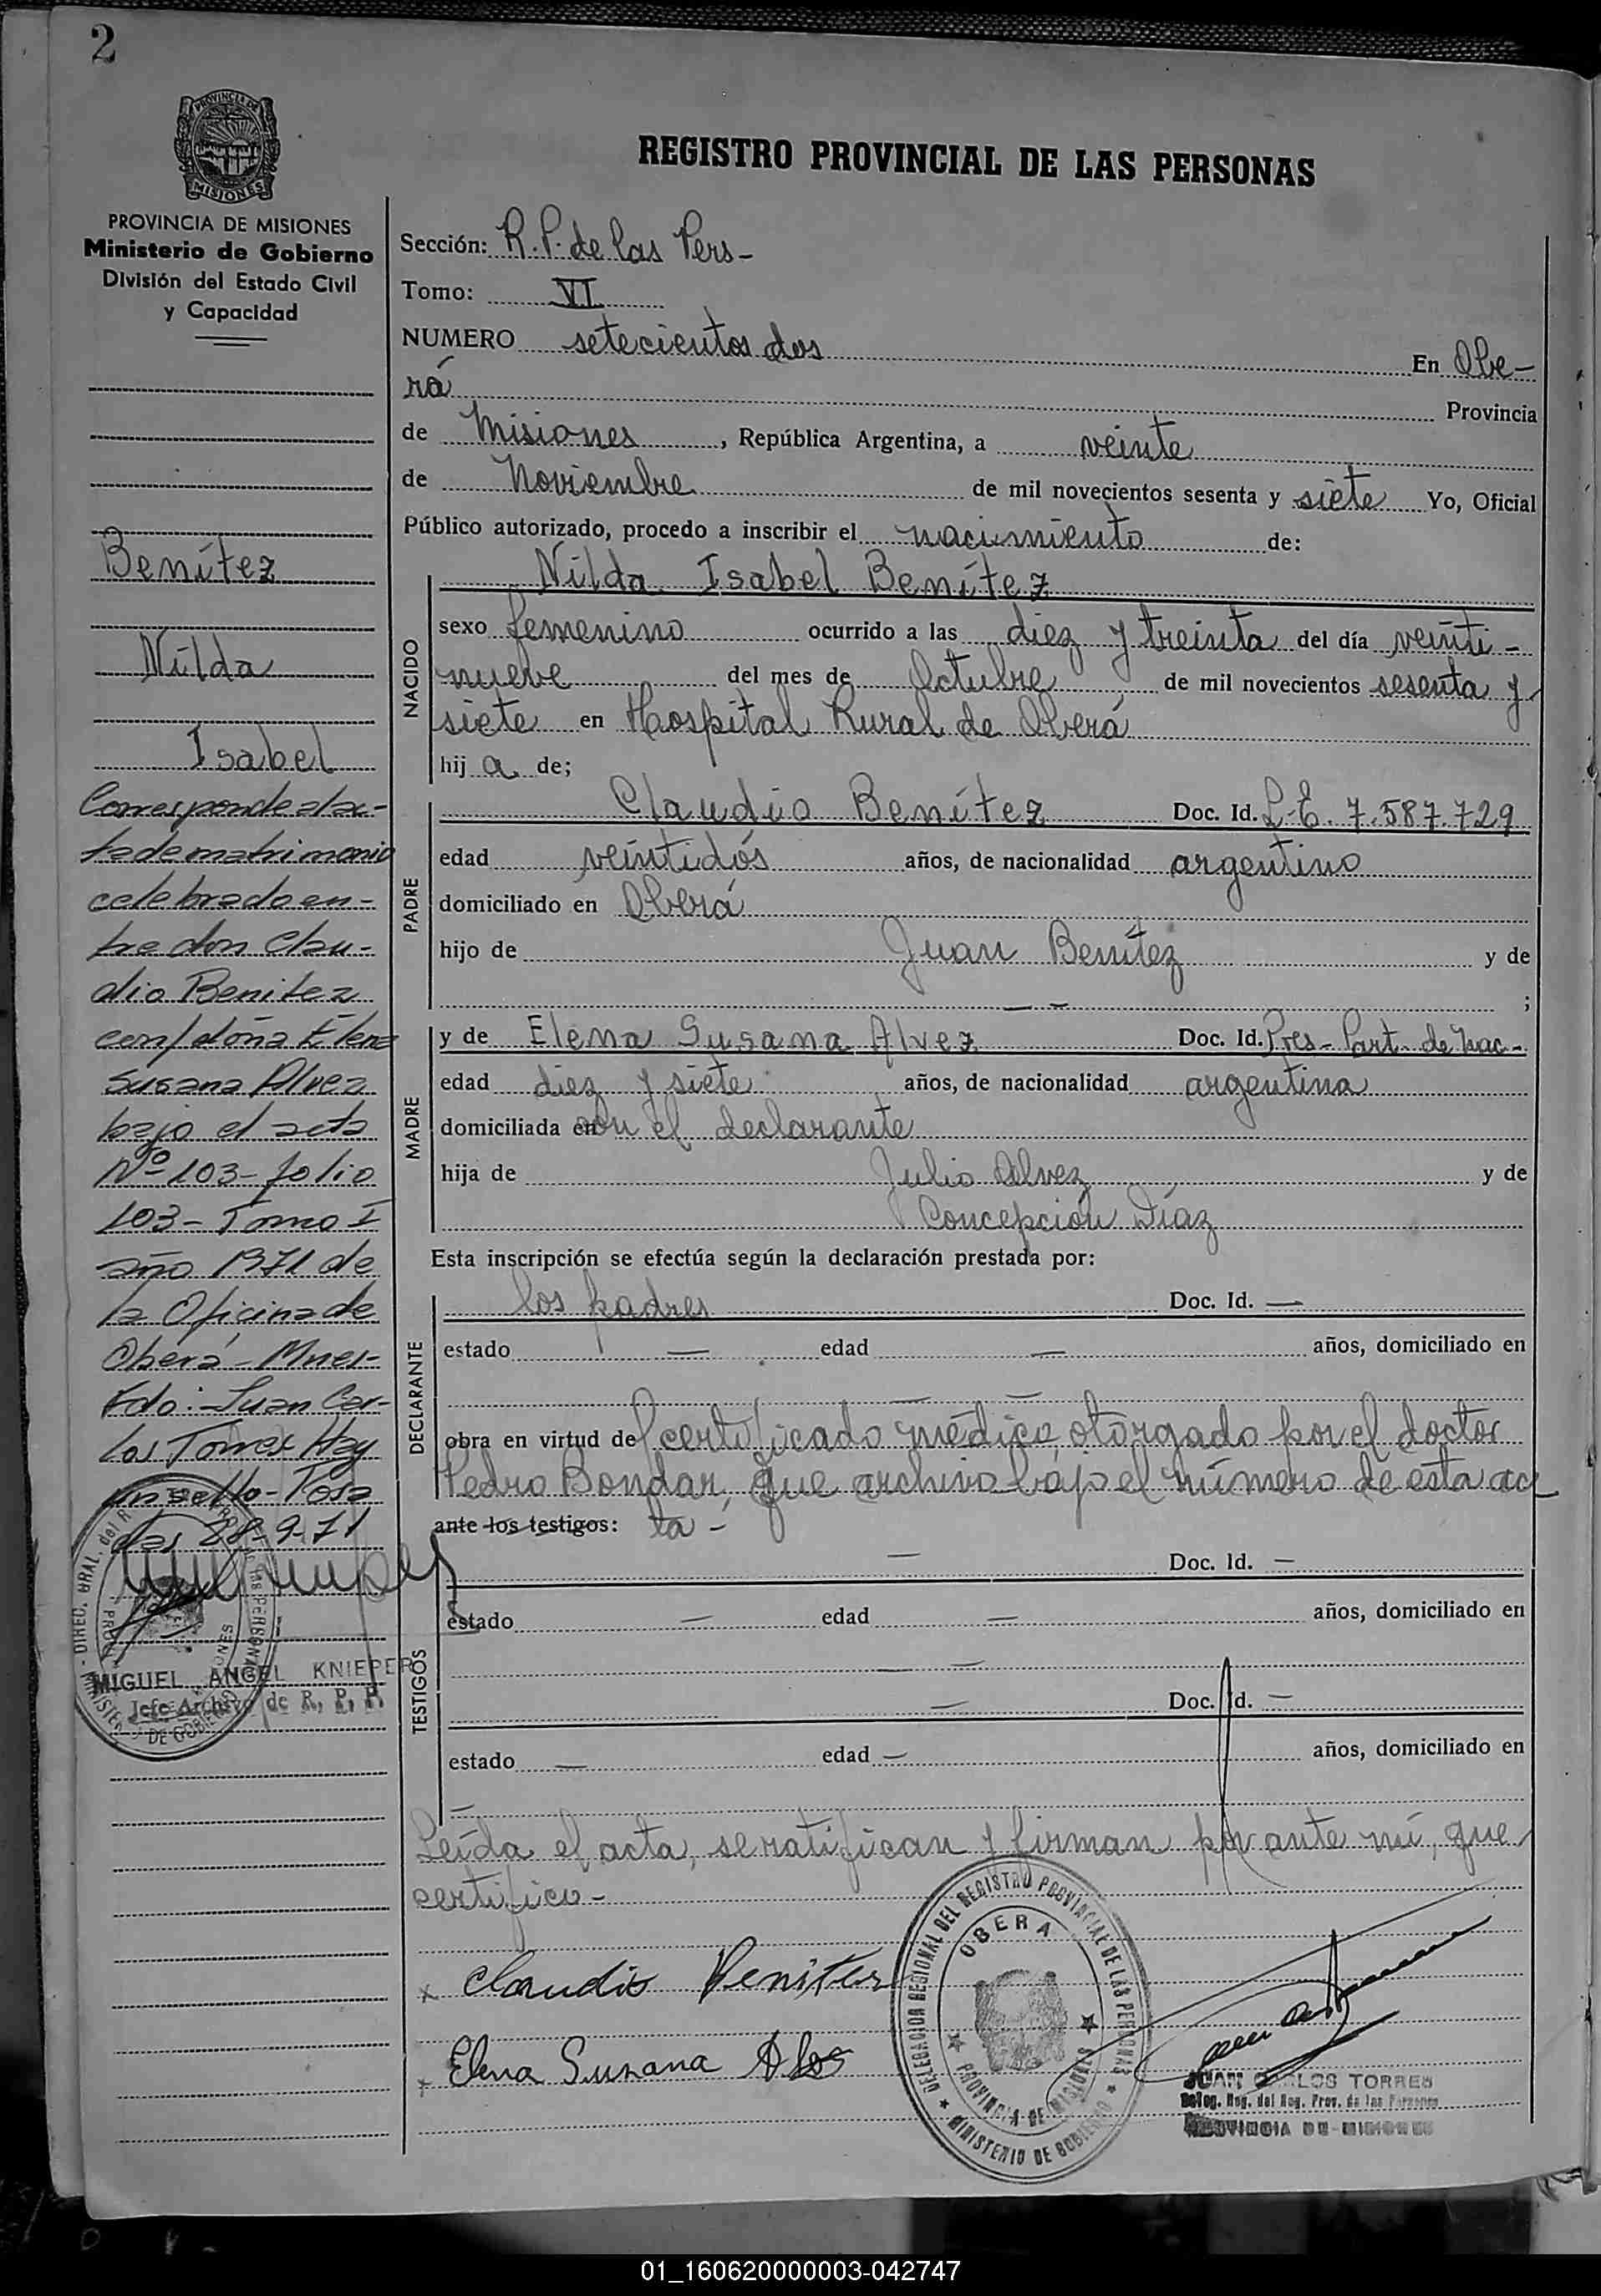 2
PROVINCIA DE
MISIONES
PROVINCIA DE MISIONES
Ministerio de Gobierno
División del Estado Civil
y Capacidad
Benítez
Nilda
Isabel
Corresponde al ac-
ta de matrimonio
celebrado en-
tre don Clau-
dio Benitez
con/doña Elena
Susana Alvez
bajo el acta
Nº 103- folio
103- Tomo I
año 1971 de
la Oficina de
Oberá- Mnes-
Fdo: Juan Car-
los Torres Hay
un sello- Posa
das 28-9-71
MIGUEL ANGEL KNIEPER
Jefe Archivo de R. P. P.
REGISTRO PROVINCIAL DE LAS PERSONAS
Sección: R.P. de las Pers-
Tomo: VI
NUMERO setecientos dos En Obe-
rá Provincia
de Misiones, República Argentina, a veinte
de Noviembre de mil novecientos sesenta y siete Yo, Oficial
Público autorizado, procedo a inscribir el nacimiento de:
NACIDO
Nilda Isabel Benítez
sexo femenino ocurrido a las diez y treinta del día veinti-
nueve del mes de Octubre de mil novecientos sesenta y
siete en Hospital Rural de Oberá
hij a de;
PADRE
Claudio Benítez Doc. Id. L.E. 7.587.729
edad veintidós años, de nacionalidad argentino
domiciliado en Oberá
hijo de Juan Benítez y de
— — ;
MADRE
y de Elena Susana Alvez Doc. Id. Pres- Part- de Nac-
edad diez y siete años, de nacionalidad argentina
domiciliada en con el declarante
hija de Julio Alvez y de
Concepción Díaz
Esta inscripción se efectúa según la declaración prestada por:
DECLARANTE
los padres Doc. Id. —
estado — edad — años, domiciliado en
— —
obra en virtud del certificado médico, otorgado por el doctor
Pedro Bondar, que archivo bajo el número de esta ac
ante los testigos: ta -
TESTIGOS
— Doc. Id. —
estado — edad — años, domiciliado en
— —
— Doc. Id. —
estado — edad — años, domiciliado en
—
Leída el acta, se ratifican y firman por ante mí, que
certifico-
x Claudio Benitez
x Elena Susana
DELEGACION REGIONAL DEL REGISTRO PROVINCIAL DE LAS PERSONAS
OBERA
PROVINCIA DE MISIONES
MINISTERIO DE GOBIERNO
JUAN CARLOS TORRES
Deleg. Reg. del Reg. Prov. de las Personas
PROVINCIA DE MISIONES
01_160620000003-042747